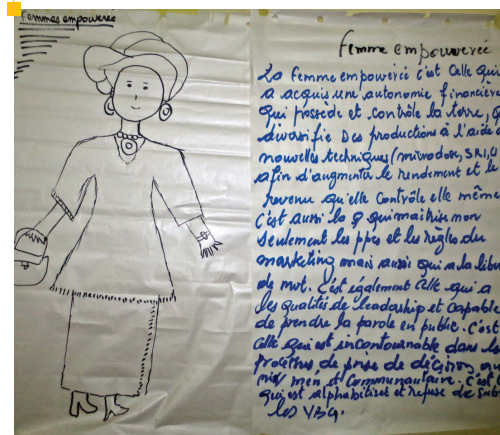 Femmes empowerée
femme empowerée
La femme empowerée c'est celle qui
a acquis une autonomie financière
qui possède et contrôle la terre,
diversifie Des productions à l'aide
nouvelles techniques (microdose, SRI,
afin d'augmenter le rendement et le
revenu qu'elle contrôle elle même
C'est aussi la ♀ qui maitrise non
seulement les ppes et les règles du
marketing mais aussi qui a la
de mvt. C'est également celle qui a
les qualités de leadership et capable
de prendre la parole en public. C'est
celle qui est incontournable dans
de prise de décision
men, et communautaire. C'est
qui est alphabétisée et refuse de
les VBG.